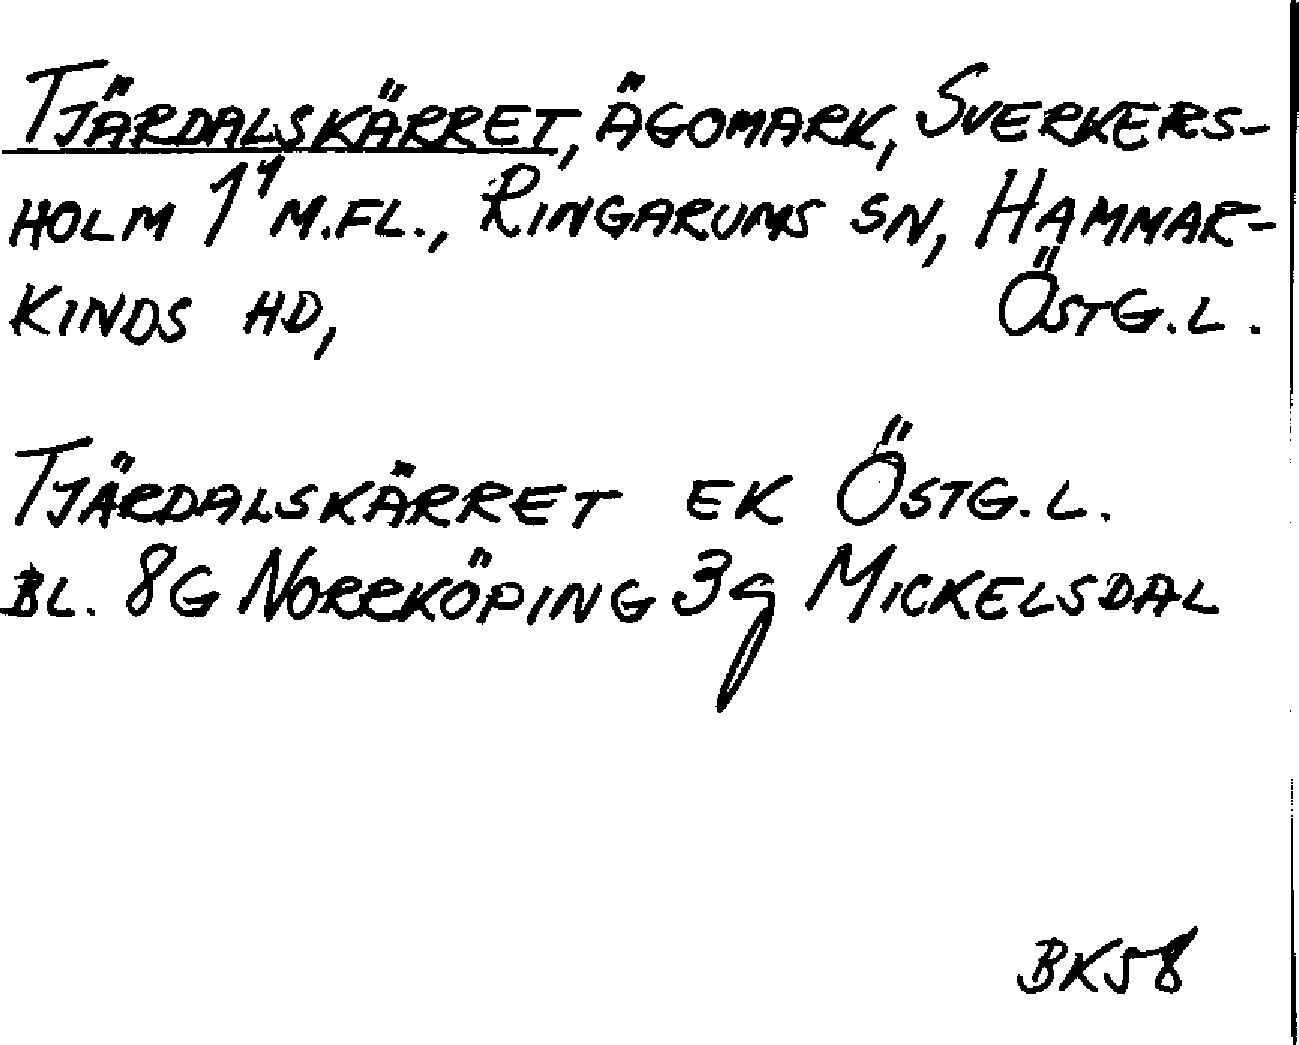 TJÄRDALSKÄRRET, ÄGOMARK, SVERKERS-
HOLM 1¹ M.FL., RINGARUMS SN, HAMMAR-
KINDS HD, ÖSTG.L.
TJÄRDALSKÄRRET EK ÖSTG.L.
BL. 8G NORRKÖPING 3g MICKELSDAL
BK58